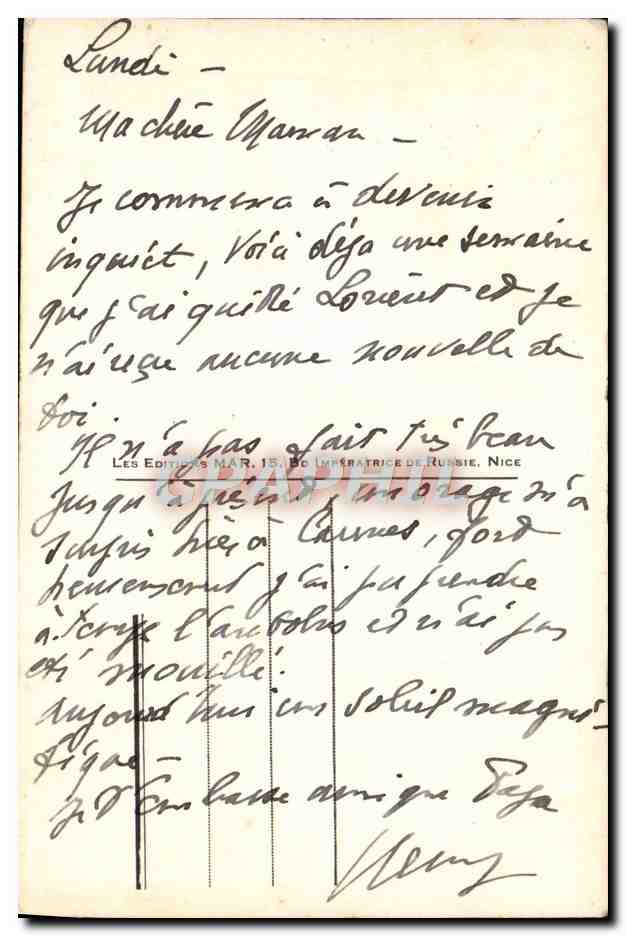 Lundi –
Ma chère Maman –
Je commence à devenir
inquiet, voilà déja une semaine
que j'ai quitté Lorient et je
n'ai reçu aucune nouvelle de
toi.
Il n'a pas fait très beau
LES EDITIONS MAR, 15, BD IMPÉRATRICE DE RUSSIE, NICE
CPAPHIL
jusqu'à présent, un orage m'a
surpris hier à Cannes, fort
heureusement j'ai pu prendre
à temps l'autobus et n'ai pas
été mouillé.
aujourd'hui un soleil magni-
fique –
Je t'embrasse ainsi que Papa
Henry